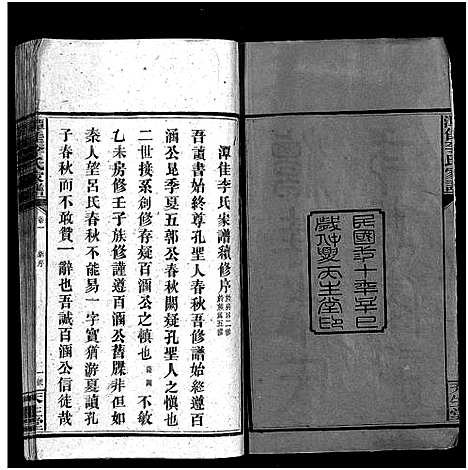 民國三十年辛巳
歲仲夏天生堂印
潭佳李氏家譜續修序
吾讀書始終尊孔聖人春秋吾修譜始終遵百
涵公昆季夏五郭公春秋闕疑孔聖人之慎也
二世接系創修存疑百涵公之慎也 不敏
乙未房修壬子族修謹遵百涵公舊牒非但如
秦人望呂氏春秋不能易一字實猶游夏讀孔
子春秋而不敢贊一辭也吾誠百涵公信徒哉
潭佳李氏家譜
卷一
天生堂